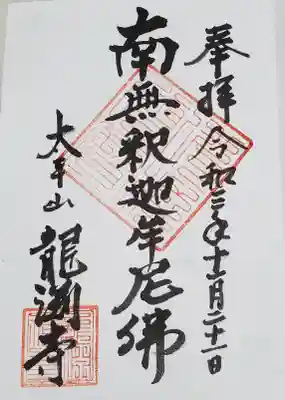 奉拝 令和三年十一月二十一日
南無釈迦牟尼佛
太平山 龍淵寺